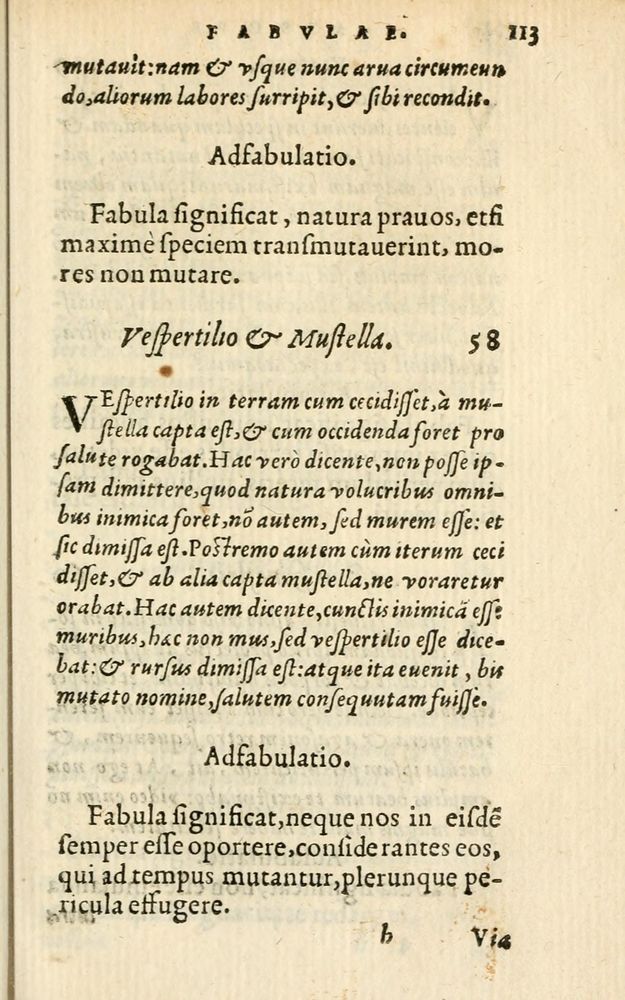 FABVLAE. 113
mutauit: nam & vſque nunc arua circumeun
do, aliorum labores ſurripit, & ſibi recondit.
Adfabulatio.
Fabula ſignificat, natura prauos, etſi
maximè ſpeciem tranſmutauerint, mo-
res non mutare.
Veſpertilio & Muſtella. 58
VEſpertilio in terram cum cecidiſſet, à mu-
ſtella capta eſt, & cum occidenda foret pro
ſalute rogabat. Hac verò dicente, non poſſe ip-
ſam dimittere, quod natura volucribus omni-
bus inimica foret, nõ autem, ſed murem eſſe: et
ſic dimiſſa eſt. Poſtremo autem cùm iterum ceci
diſſet, & ab alia capta muſtella, ne voraretur
orabat. Hac autem dicente, cunctis inimicã eſſe
muribus, hæc non mus, ſed veſpertilio eſſe dice-
bat: & rurſus dimiſſa eſt: atque ita euenit, bis
mutato nomine, ſalutem conſequutam fuiſſe.
Adfabulatio.
Fabula ſignificat, neque nos in eiſdẽ
ſemper eſſe oportere, conſiderantes eos,
qui ad tempus mutantur, plerunque pe-
ricula effugere.
h Via